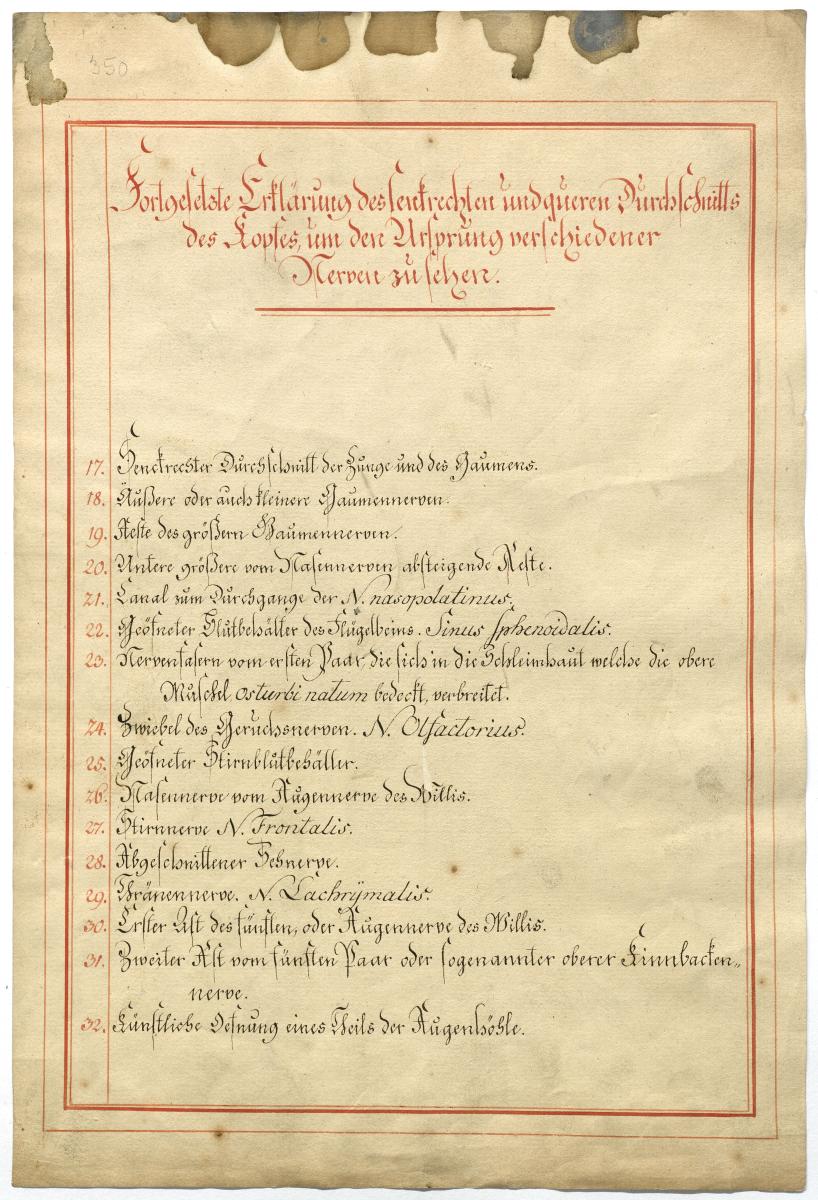 350
Fortgesetzte Erklärung des senkrechten und queren Durchschnitts
des Kopfes, um den Ursprung verschiedener
Nerven zu sehen.
17. Senckrechter Durchschnitt der Zunge und des Gaumens.
18. Äußere oder auch kleinere Gaumennerven.
19. Aeste des größern Gaumennerven.
20. Untere größere vom Nasennerven absteigende Aeste.
21. Canal zum Durchgange der N. nasopolatinus.
22. Geöfneter Blutbehälter des Flügelbeins. Sinus sphenoidalis.
23. Nervenfasern vom ersten Paar, die sich in die Schleimhaut welche die obere
Muschel os turbinatum bedeckt, verbreitet.
24. Zwiebel des Geruchsnerven. N. Olfactorius.
25. Geöfneter Stirnblutbehälter.
26. Nasennerve vom Augennerve des Willis.
27. Stirnnerve N. Frontalis.
28. Abgeschnittener Sehnerve.
29. Thränennerve. N. Lachrÿmalis.
30. Erster Ast des fünften, oder Augennerve des Willis.
31. Zweiter Ast vom fünften Paar oder sogenannter oberer Kinnbacken„
nerve.
32. Künstliche Oefnung eines Theils der Augenhöhle.